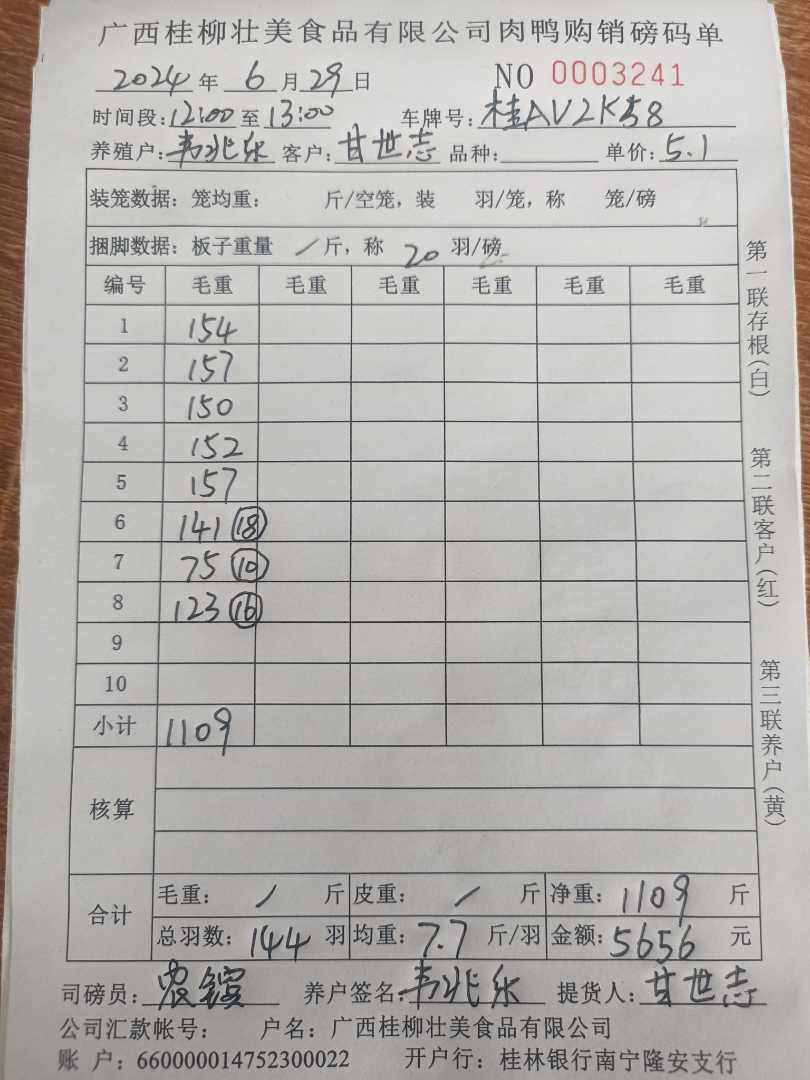 广西桂柳壮美食品有限公司肉鸭购销磅码单
2024年 6月29日 NO 0003241
时间段:12:00至13:00 车牌号:桂AV2K58
养殖户:韦兆乐 客户:甘世志 品种: 单价:5.1
装笼数据:笼均重: 斤/空笼,装 羽/笼,称 笼/磅
捆脚数据:板子重量 / 斤,称 20 羽/磅
编号 毛重 毛重 毛重 毛重 毛重 毛重
1 154
2 157
3 150
4 152
5 157
6 141 18
7 75 10
8 123 16
9
10
小计 1109
核算
合计 毛重: / 斤 皮重: / 斤 净重:1109 斤
总羽数:144 羽 均重:7.7 斤/羽 金额:5656 元
司磅员:农镔 养户签名:韦兆乐 提货人:甘世志
公司汇款帐号: 户名:广西桂柳壮美食品有限公司
账 户:660000014752300022 开户行:桂林银行南宁隆安支行
第一联存根(白)
第二联客户(红)
第三联养户(黄)